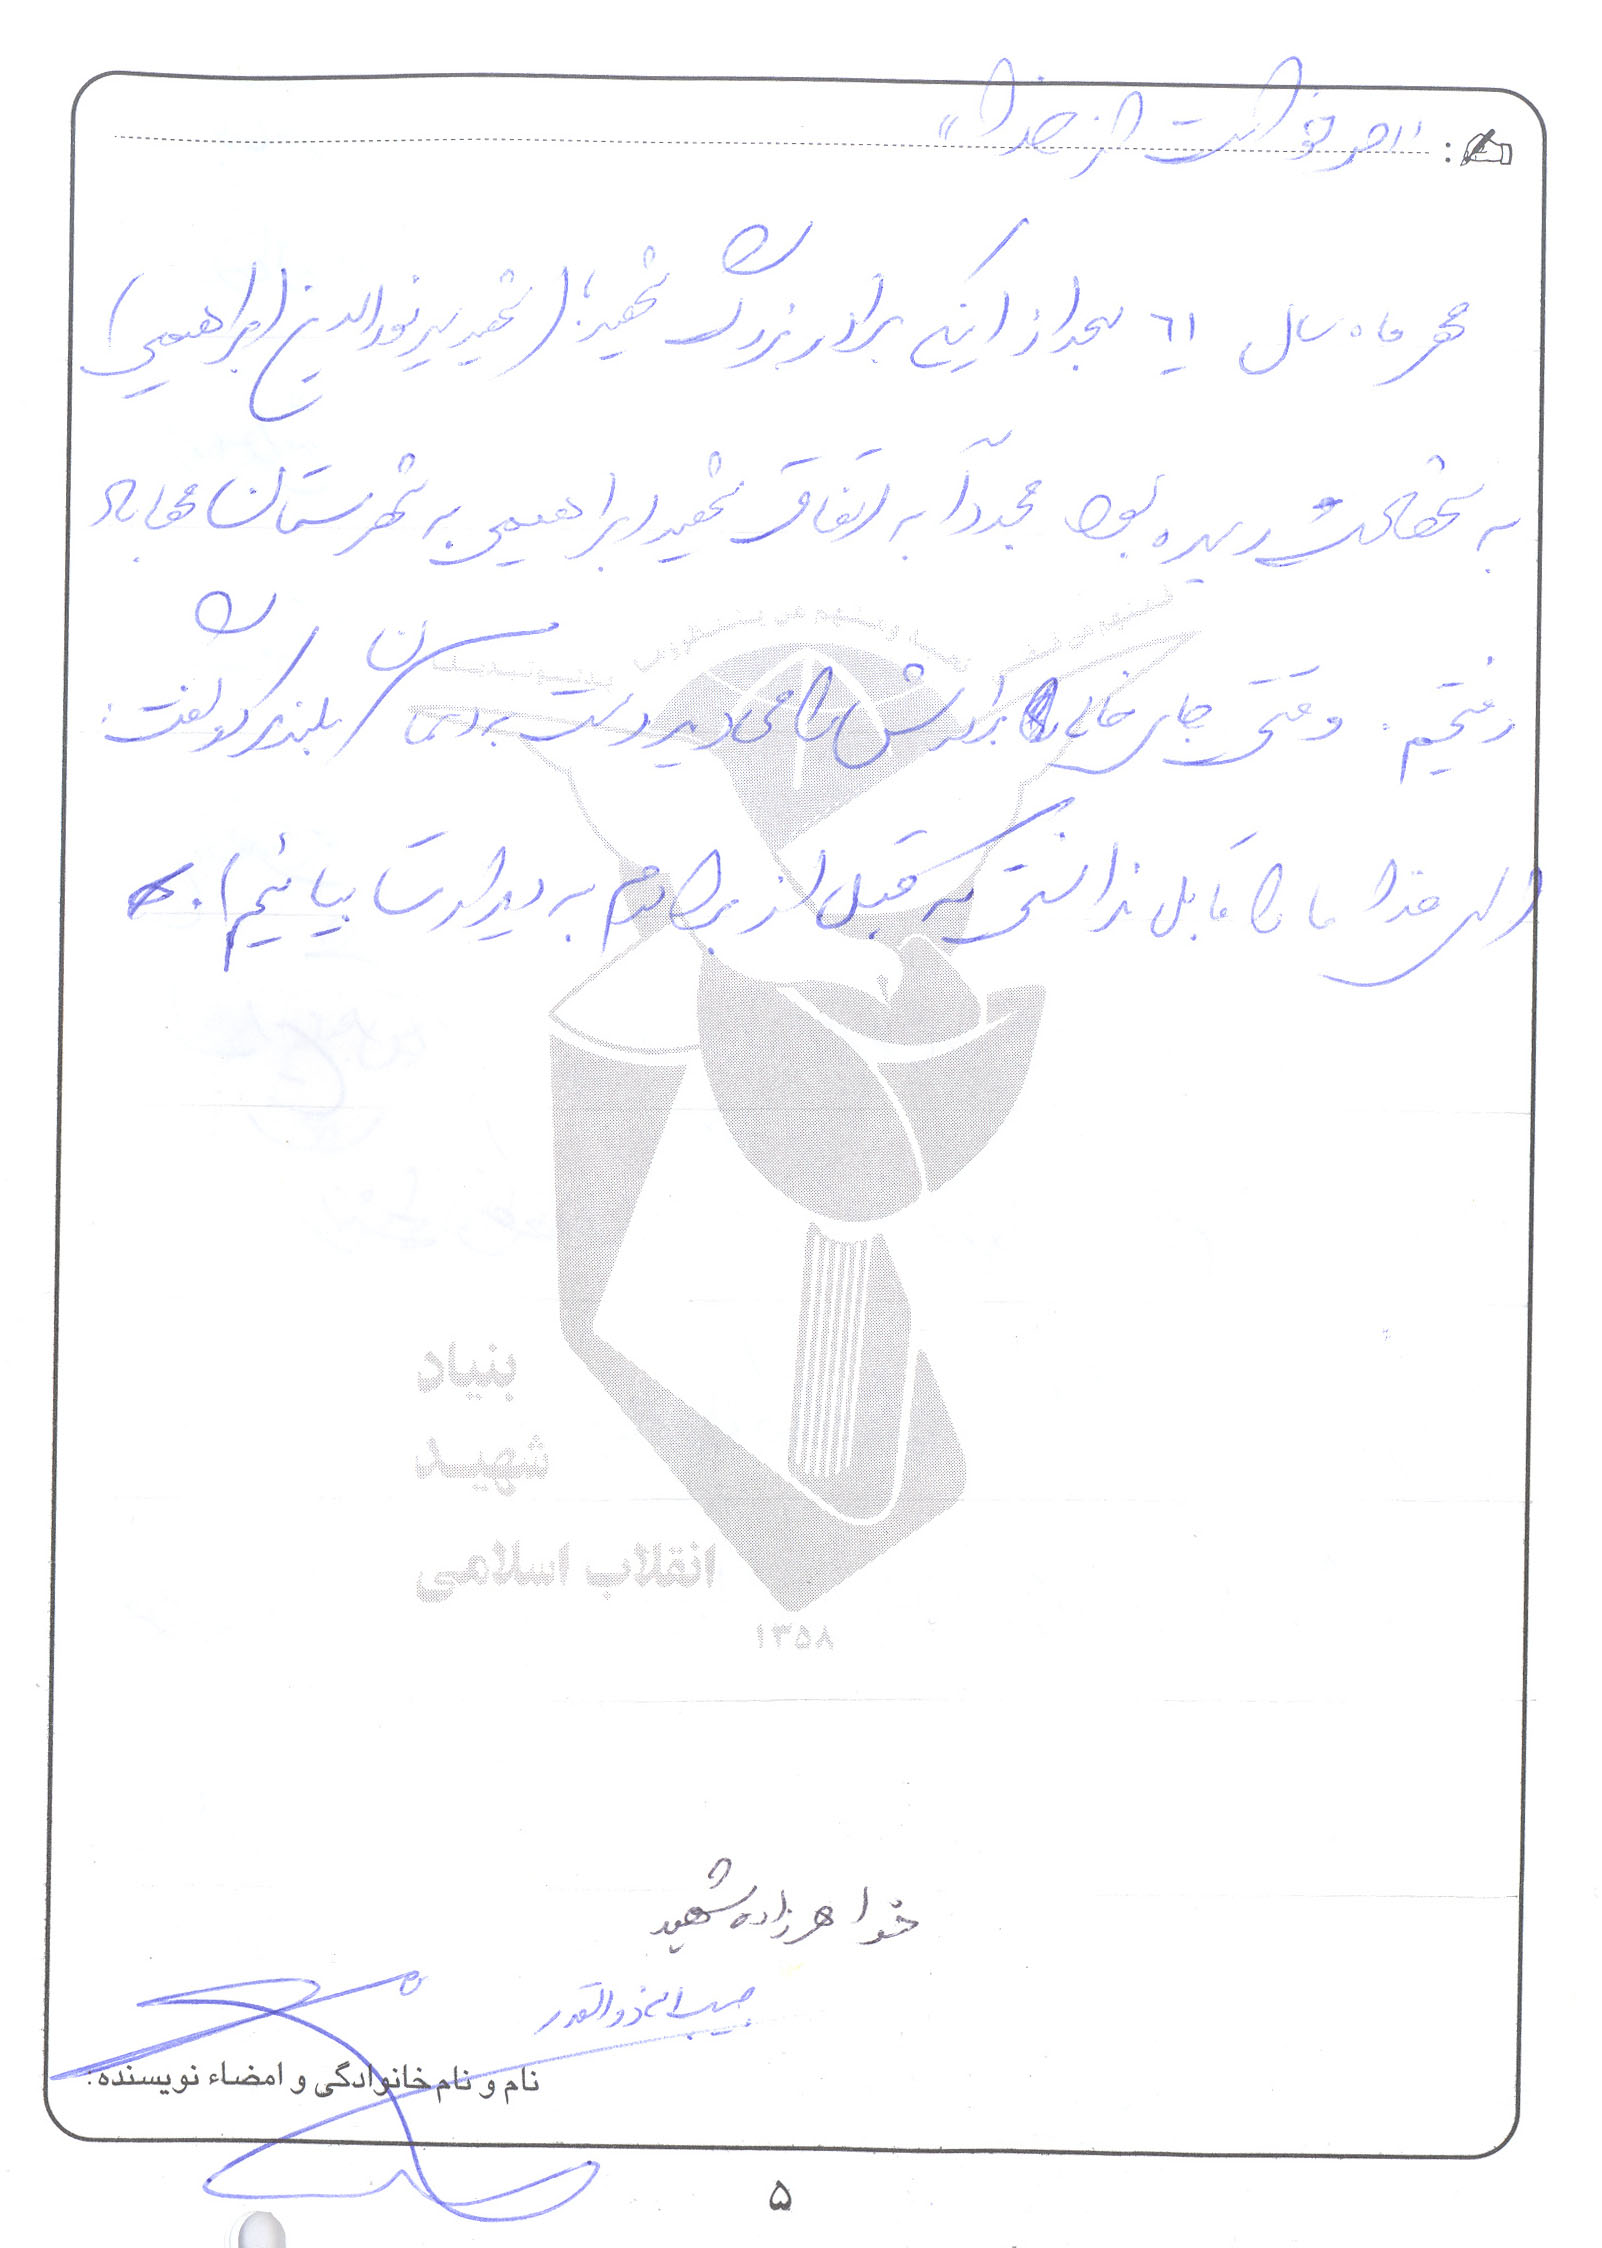 "درخواست از خدا"
مهر ماه سال ٦١ بعد از اینکه برادر بزرگ شهید؛ (شهید سید نورالدین ابراهیمی)
به شهادت رسیده بود مجدداً به اتفاق شهید ابراهیمی به شهرستان مهاباد
رفتیم. وقتی جای خالی برادرش را می دید دست به آسمان بلند کرد و گفت:
(ای خدا ما را قابل ندانستی که قبل از برادرم به دیدارت بیائیم).
بنیاد
شهید
انقلاب اسلامی
۱۳۵۸
خواهرزاده شهید
حبیب اله ذوالقدر
نام و نام خانوادگی و امضاء نویسنده:
۵